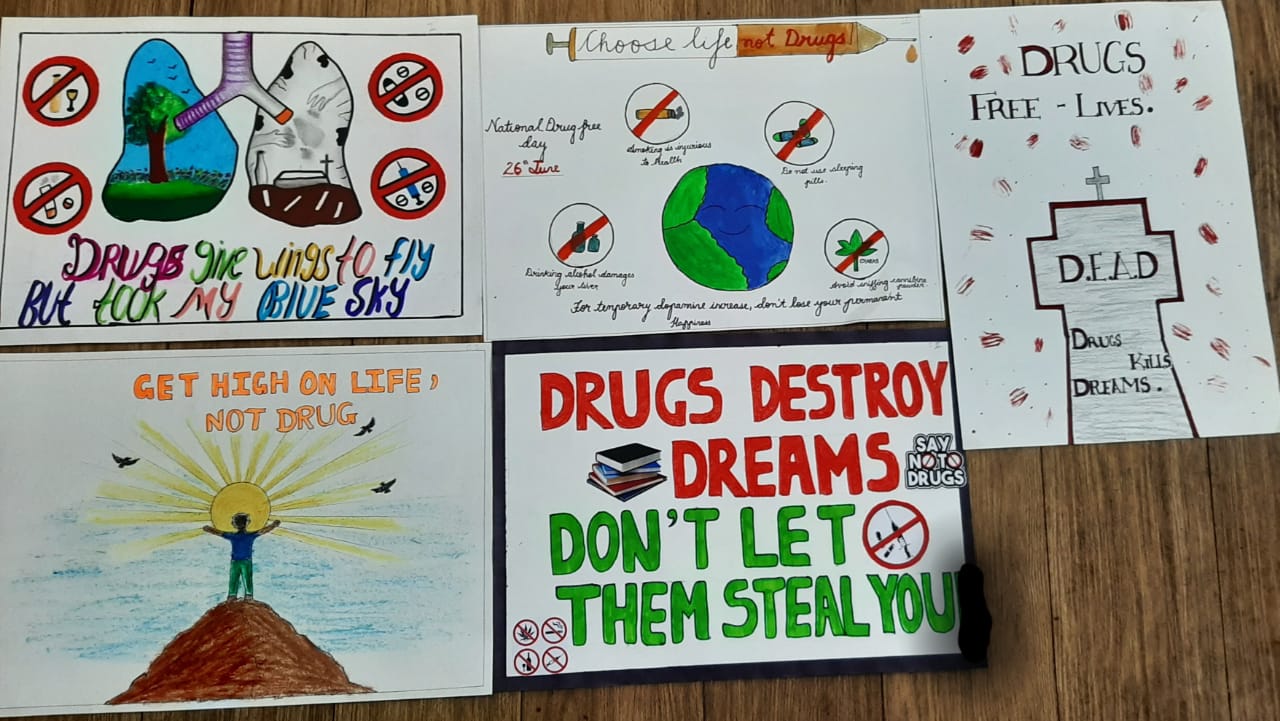 DRUGS give wings to fly
BUT took MY BLUE SKY
Choose life not Drugs
National Drug free
day
26th June
Smoking is injurious
to health
Do not use sleeping
pills.
Drinking alcohol damages
your liver
Avoid sniffing
powder.
For temporary dopamine increase, don't lose your permanent
Happiness
DRUGS
FREE - LIVES.
D.E.A.D
DRUGS
KILLS
DREAMS.
GET HIGH ON LIFE,
NOT DRUG
DRUGS DESTROY
DREAMS
SAY
NO TO
DRUGS
DON'T LET
THEM STEAL YOU